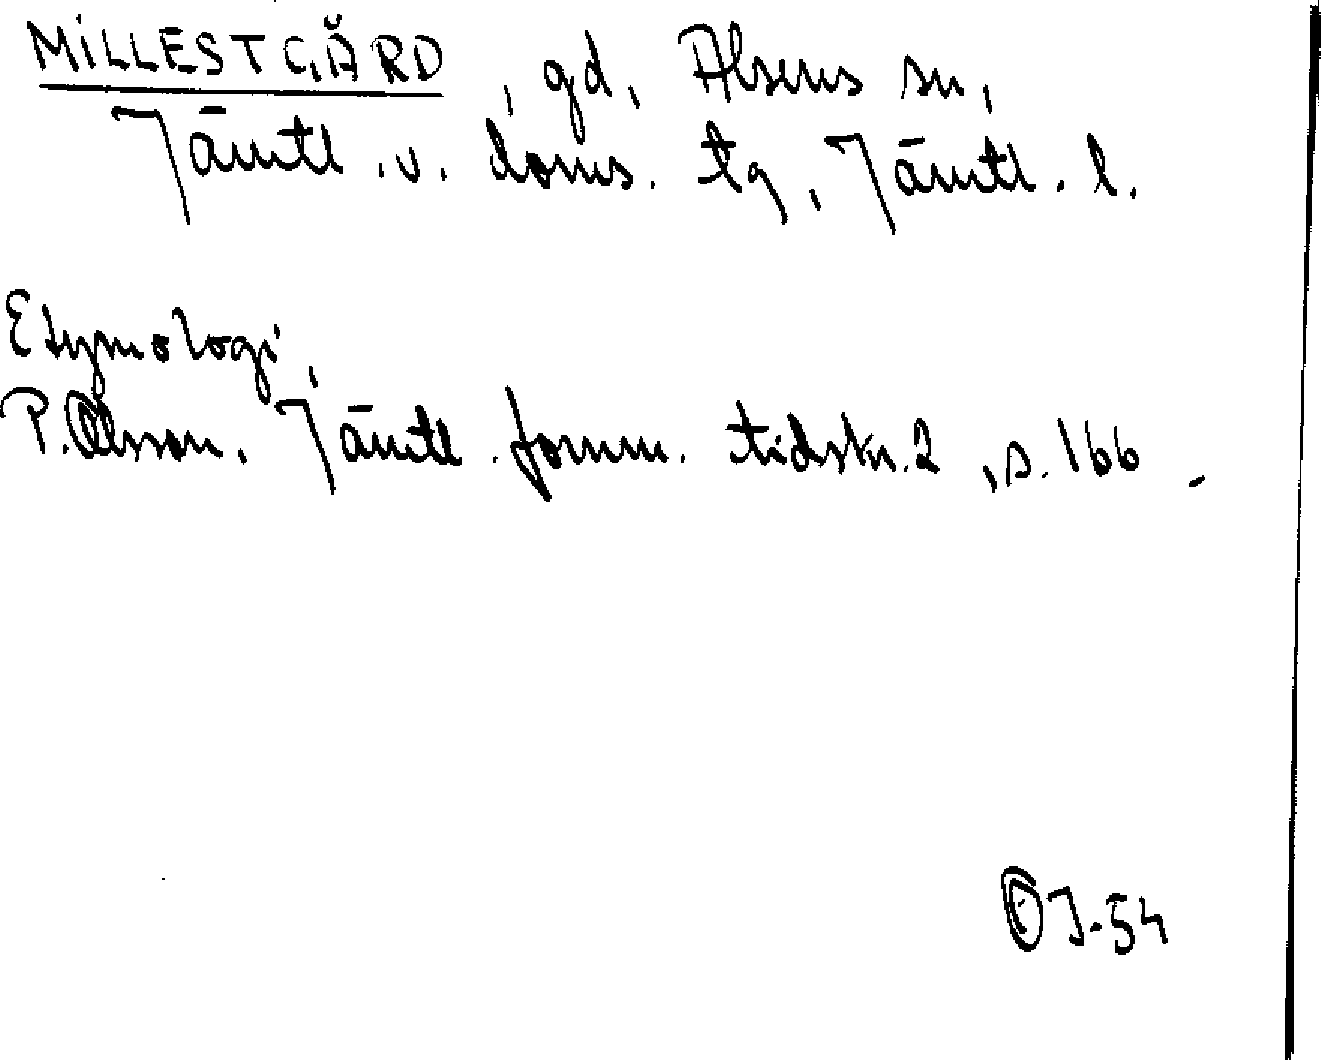 MILLESTGÅRD, gd, Alsens sn,
Jämtl. v. doms. tg, Jämtl. l.
Etymologi,
P. Olsson, Jämtl. fornm. tidskr. 2, s. 166.
OJ-54